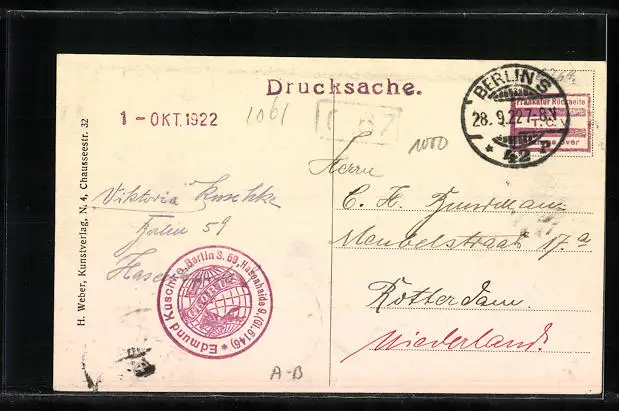 Drucksache.
1 - OKT. 1922
1061
1000
BERLIN S
28.9.22 7-8V
* 42 *
Frankatur Rückseite
over
H. Weber, Kunstverlag, N. 4, Chausseestr. 32
Viktoria Kuschke
Berlin 59
Edmund Kuschke, Berlin S. 59, Hasenheide 9, (Gl. 6146) *
Herrn
C. H.
17.a
Rotterdam.
Niederland.
A-B